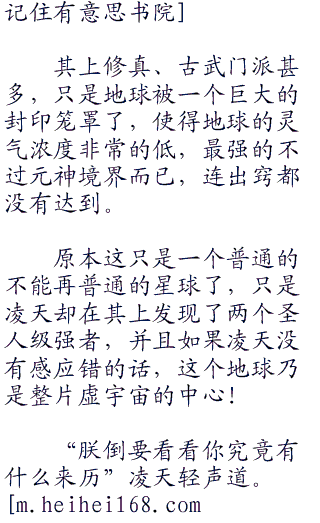 记住有意思书院]
其上修真、古武门派甚
多，只是地球被一个巨大的
封印笼罩了，使得地球的灵
气浓度非常的低，最强的不
过元神境界而已，连出窍都
没有达到。
原本这只是一个普通的
不能再普通的星球了，只是
凌天却在其上发现了两个圣
人级强者，并且如果凌天没
有感应错的话，这个地球乃
是整片虚宇宙的中心！
“朕倒要看看你究竟有
什么来历”凌天轻声道。
[m.heihei168.com